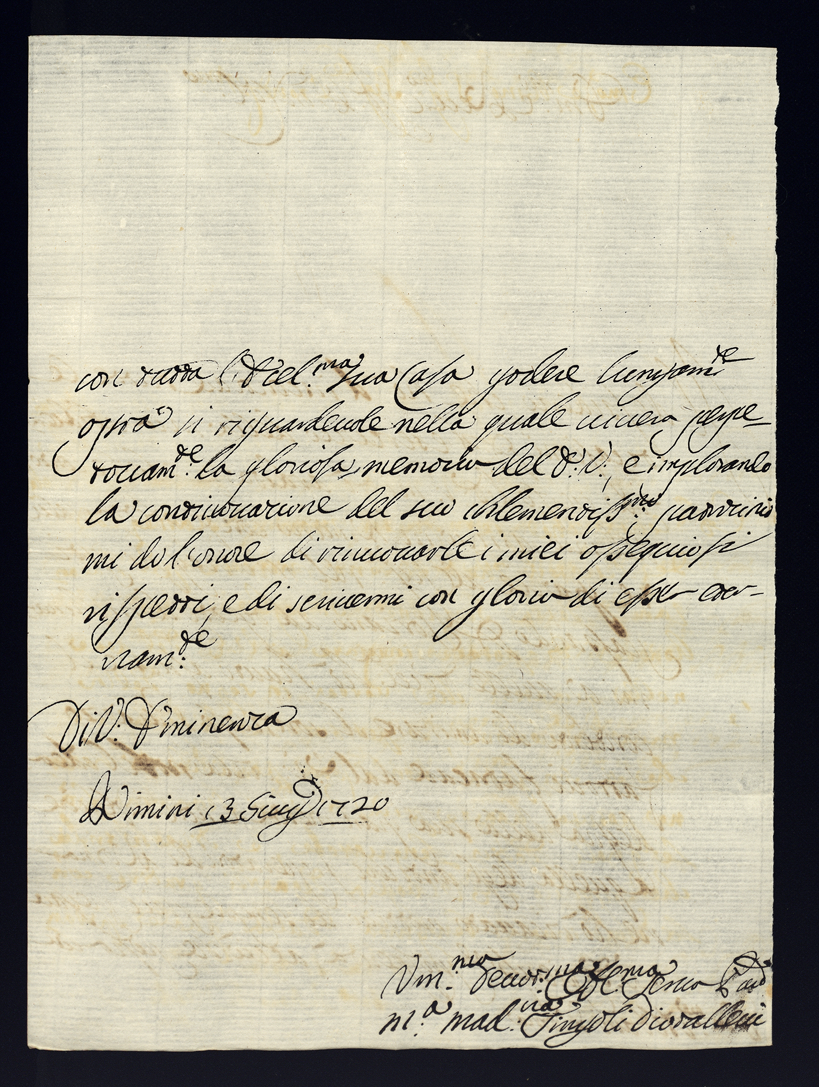 con tutta l'Ecel.ma sua Casa godere lungam.te
opra si riguardevole nella quale viverà perpe-
tuam.te la gloriosa memoria del E. V., e implorando
la continuazione del suo clementiss.mo patrocinio
mi do l'onore di rinnovarle i miei ossequiosi
rispetti, e di scrivermi con gloria di esser eter-
nam.te
Di V. Eminenza
Rimini 13 Giug 1720
Um.ma Devot.ma Obl.ma Serva
M.a Mad.